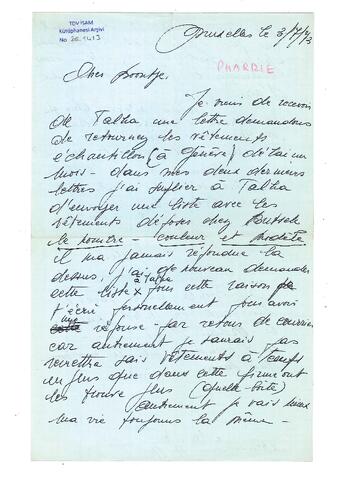 TDV İSAM
Kütüphanesi Arşivi
No 26.1413
Bruxelles le 3/7/73
PHARRIE
Cher
Je viens de recevoir
de Talha une lettre demandons
de retourner les vêtements
échantillon (à Genève) délai un
mois - dans mes deux derniers
lettres j'ai suplier à Talha
d'envoyer une liste avec les
vêtements déposes chez
le nombre - couleur et modèle
il ma jamais répondue la
dessus, j'ai de nouveau demandes
à Talha
cette liste x pour cette raison
t'écri personellement pour avoir
une
réponse - par retour de courrier
car autrement je saurais pas
remettre sais vêtements à temps
un plus que dans cette firme ont
les trouve plus (quelle boîte)
autrement je vais mieux
ma vie toujours la même -